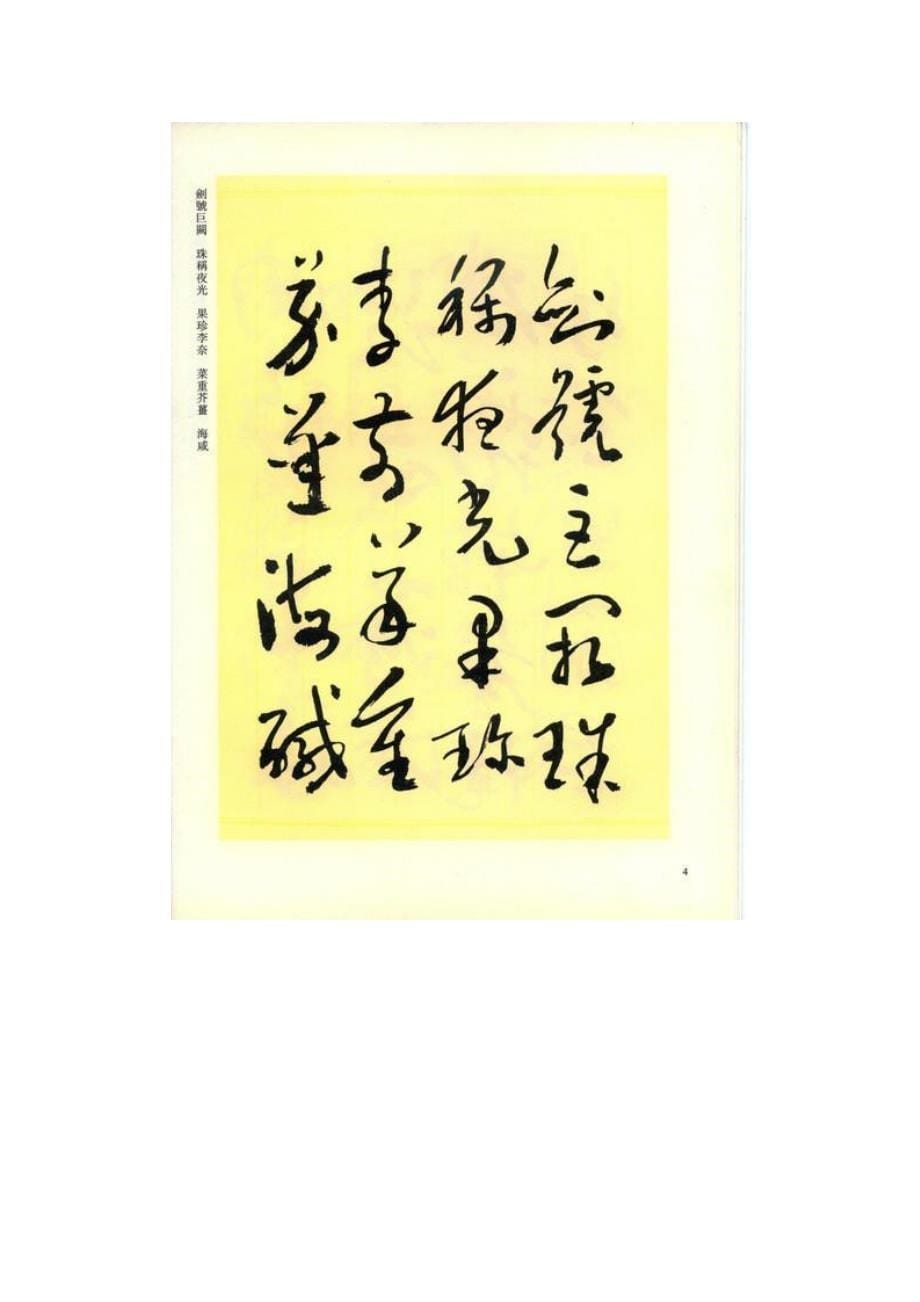 劍號巨闕珠
稱夜光果珍
李柰菜重
芥薑海鹹
劍號巨闕　珠稱夜光　果珍李奈　菜重芥薑　海咸
4